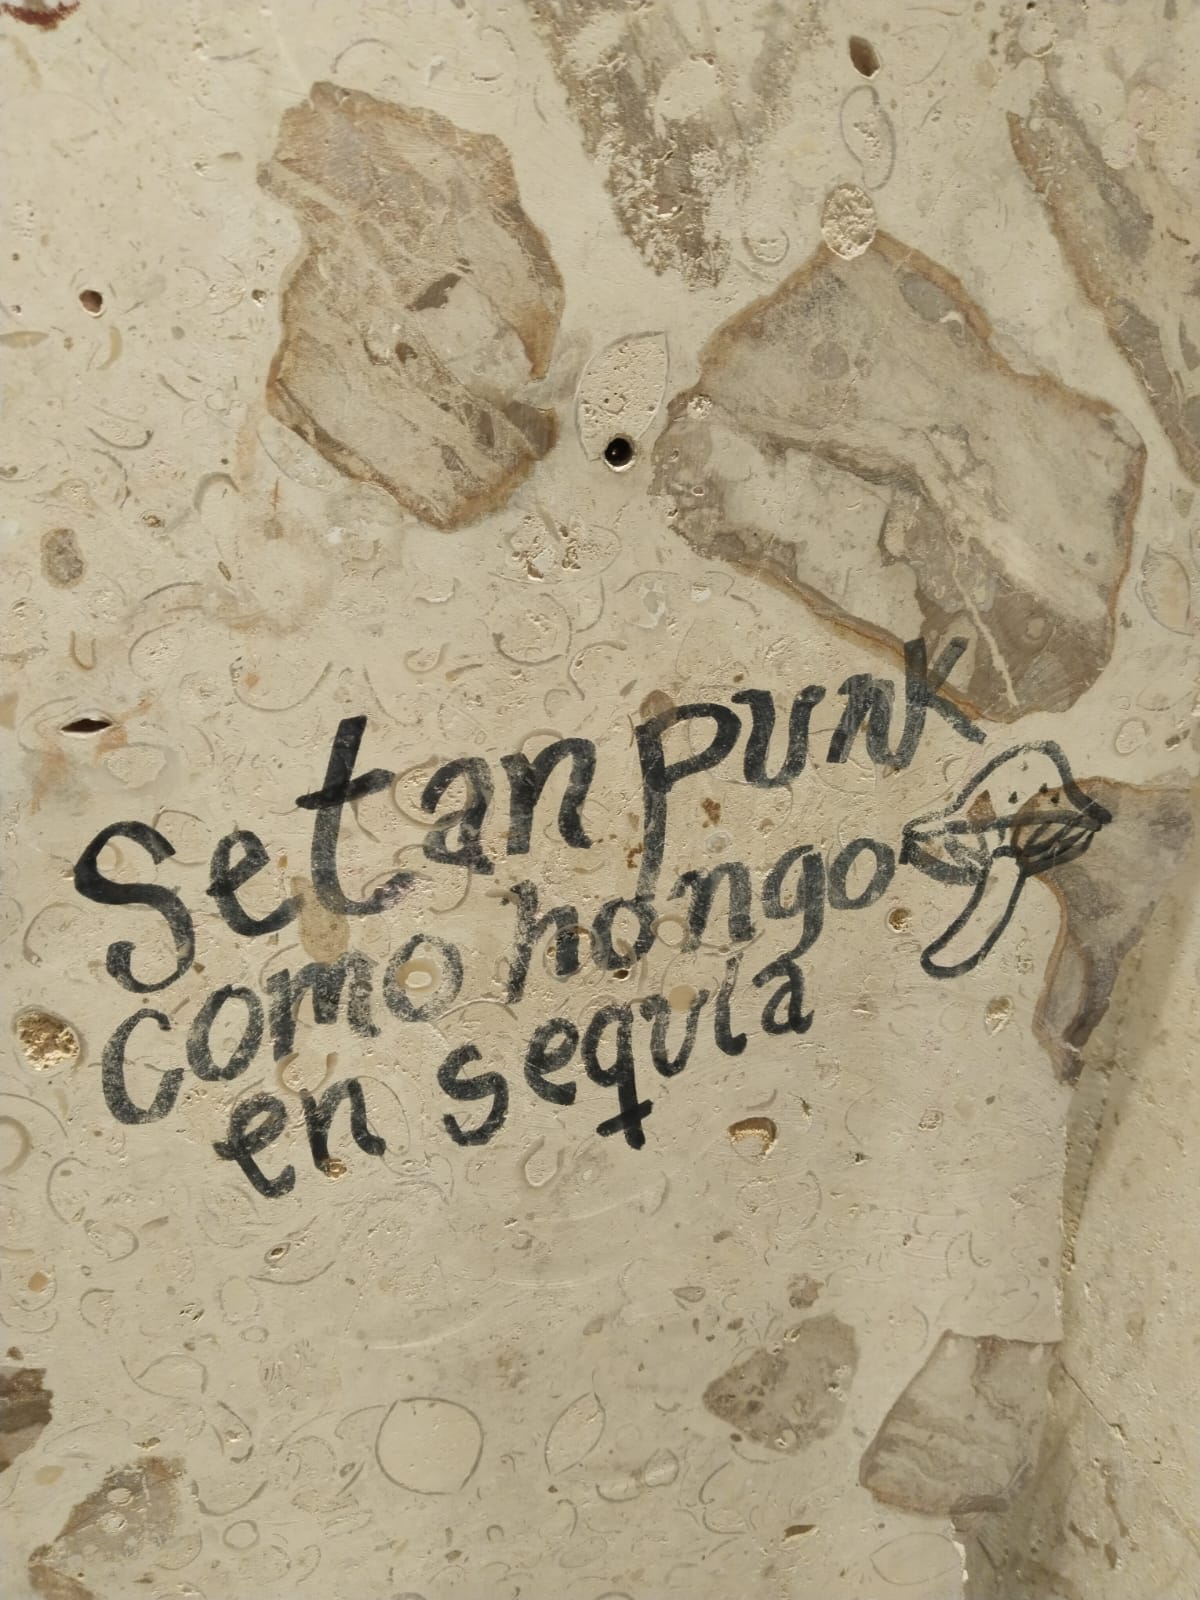 Se tan punk
como hongo
en sequia